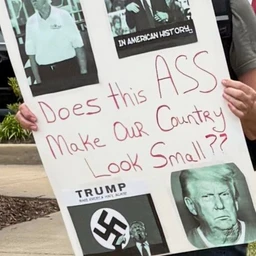 IN AMERICAN HISTORY
Does this ASS
Make Our Country
Look Small??
TRUMP